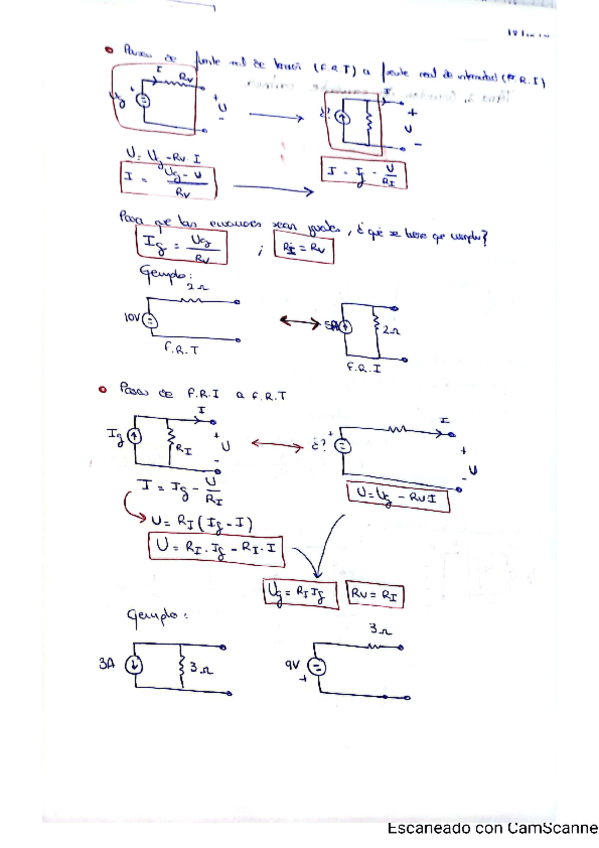 Pasar de fuente real de tensión (F.R.T) a fuente real de intensidad (F.R.I)
I Rv I
Ug + U - ¿? + U -
U = Ug - Rv I
I = Ug - U / Rv I = Ig - U / RI
Para que las ecuaciones sean iguales, ¿qué se tiene que cumplir?
Ig = Ug / Rv ; RI = Rv
Ejemplo:
2Ω
10V 5A 2Ω
F.R.T
F.R.I
Pasar de F.R.I a F.R.T
I I
Ig RI + U - ¿? + + U -
I = Ig - U / RI U = Ug - RvI
U = RI (Ig - I)
U = RI . Ig - RI . I
Ug = RI Ig Rv = RI
Ejemplo:
3Ω
3A 3Ω 9V +
Escaneado con CamScanne